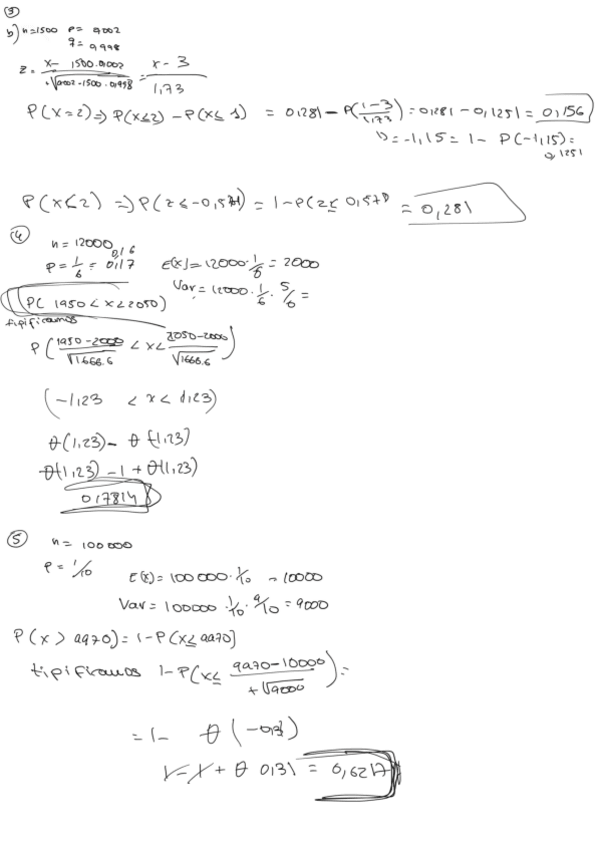 ③
b) n=1500 p= 0,002
q= 0,998
z = (x- 1500·0,002)/(+√(0,002·1500·0,998)) = (x-3)/1,73
P(X=2)=> P(x≤2) - P(x≤1) = 0,281 - P((1-3)/1,73) = 0,281 - 0,1251 = 0,156
b=-1,15 = 1- P(-1,15)=
0,1251
P(x≤2) => P(z≤-0,578) = 1-P(z≤0,578) = 0,281
④
n=12000
0,16
p=1/6 = 0,17 E(x)=12000·1/6 = 2000
Var=12000·1/6·5/6=
P( 1950<x<2050)
tipificamos
P((1950-2000)/√1666.6 <x< (2050-2000)/√1666.6)
(-1,23 <x< 1,23)
θ(1,23)- θ(-1,23)
θ(1,23) -1+θ(1,23)
0,7814
⑤ n= 100000
p= 1/10 E(x)=100000·1/10 = 10000
Var=100000·1/10·9/10=9000
P(x>9970)=1-P(x≤9970)
tipificamos 1-P(x≤ (9970-10000)/(+√9000))=
=1- θ(-0,31)
1-1+θ 0,31 = 0,6217